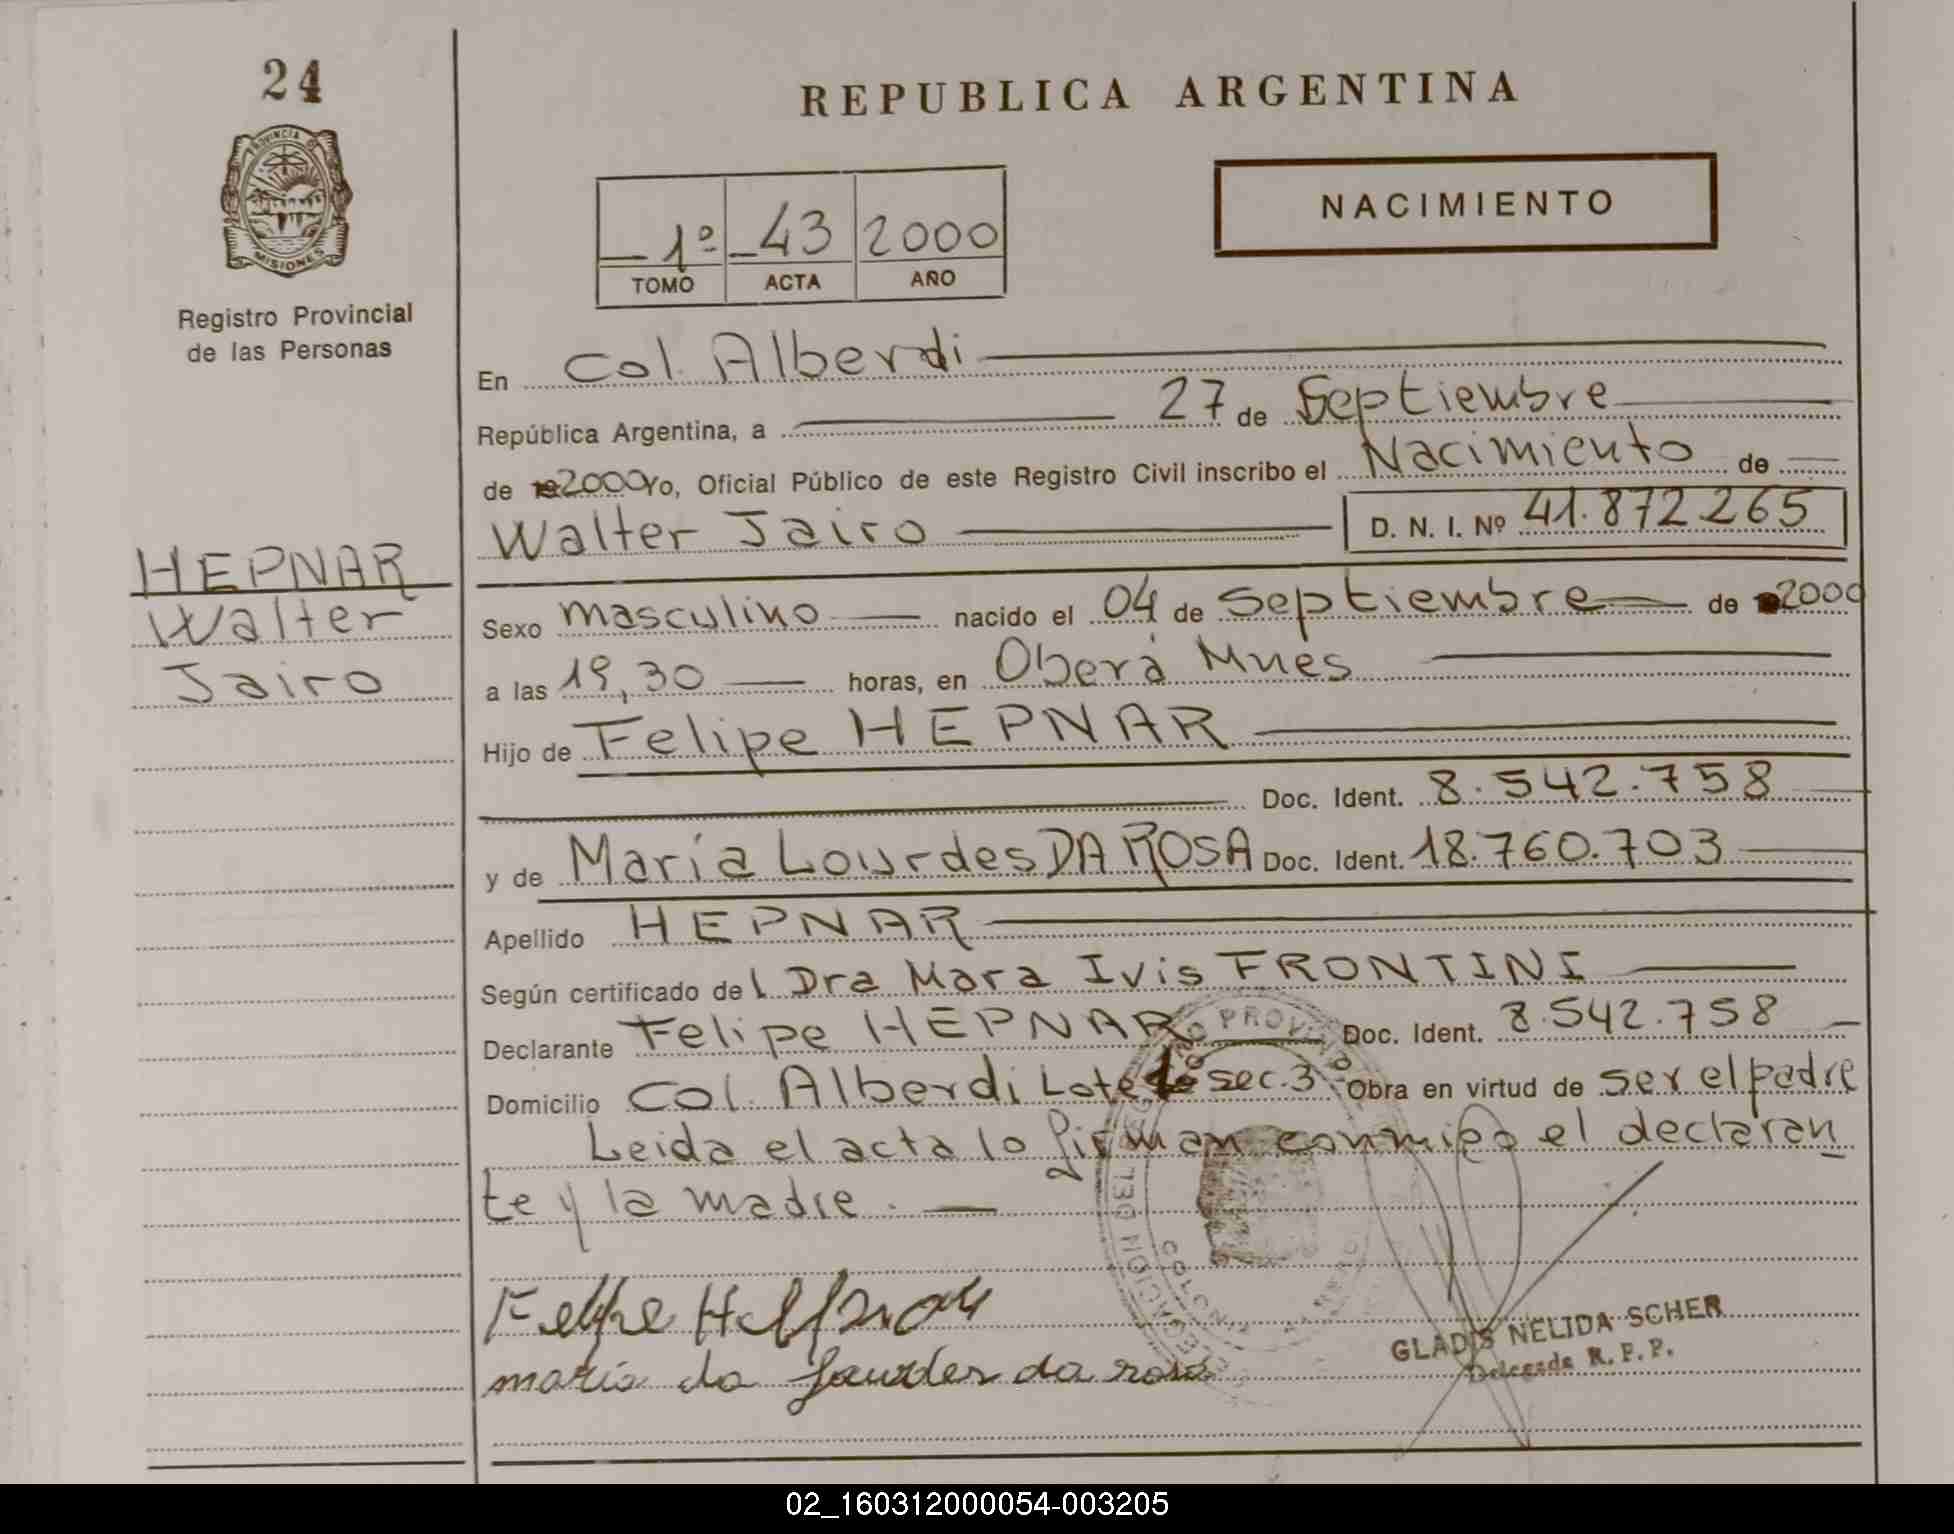 24
PROVINCIA DE
MISIONES
Registro Provincial
de las Personas
HEPNAR
Walter
Jairo
REPUBLICA ARGENTINA
1º 43 2000
TOMO ACTA AÑO
NACIMIENTO
En Col. Alberdi
República Argentina, a 27 de Septiembre
de 2000 Yo, Oficial Público de este Registro Civil inscribo el Nacimiento de
Walter Jairo D. N. I. Nº 41.872.265
Sexo masculino nacido el 04 de Septiembre de 2000
a las 19,30 horas, en Oberá Mnes
Hijo de Felipe HEPNAR
Doc. Ident. 8.542.758
y de María Lourdes DA ROSA Doc. Ident. 18.760.703
Apellido HEPNAR
Según certificado del Dra Mara Ivis FRONTINI
Declarante Felipe HEPNAR Doc. Ident. 8.542.758
Domicilio Col. Alberdi Lote sec. 3º Obra en virtud de ser el padre
Leida el acta lo firman conmigo el declaran
te y la madre.
Felipe
maria da lourdes da rosa
DELEGACION DEL
COLONIA
GLADIS NELIDA SCHER
Delegada R. P. P.
02_160312000054-003205